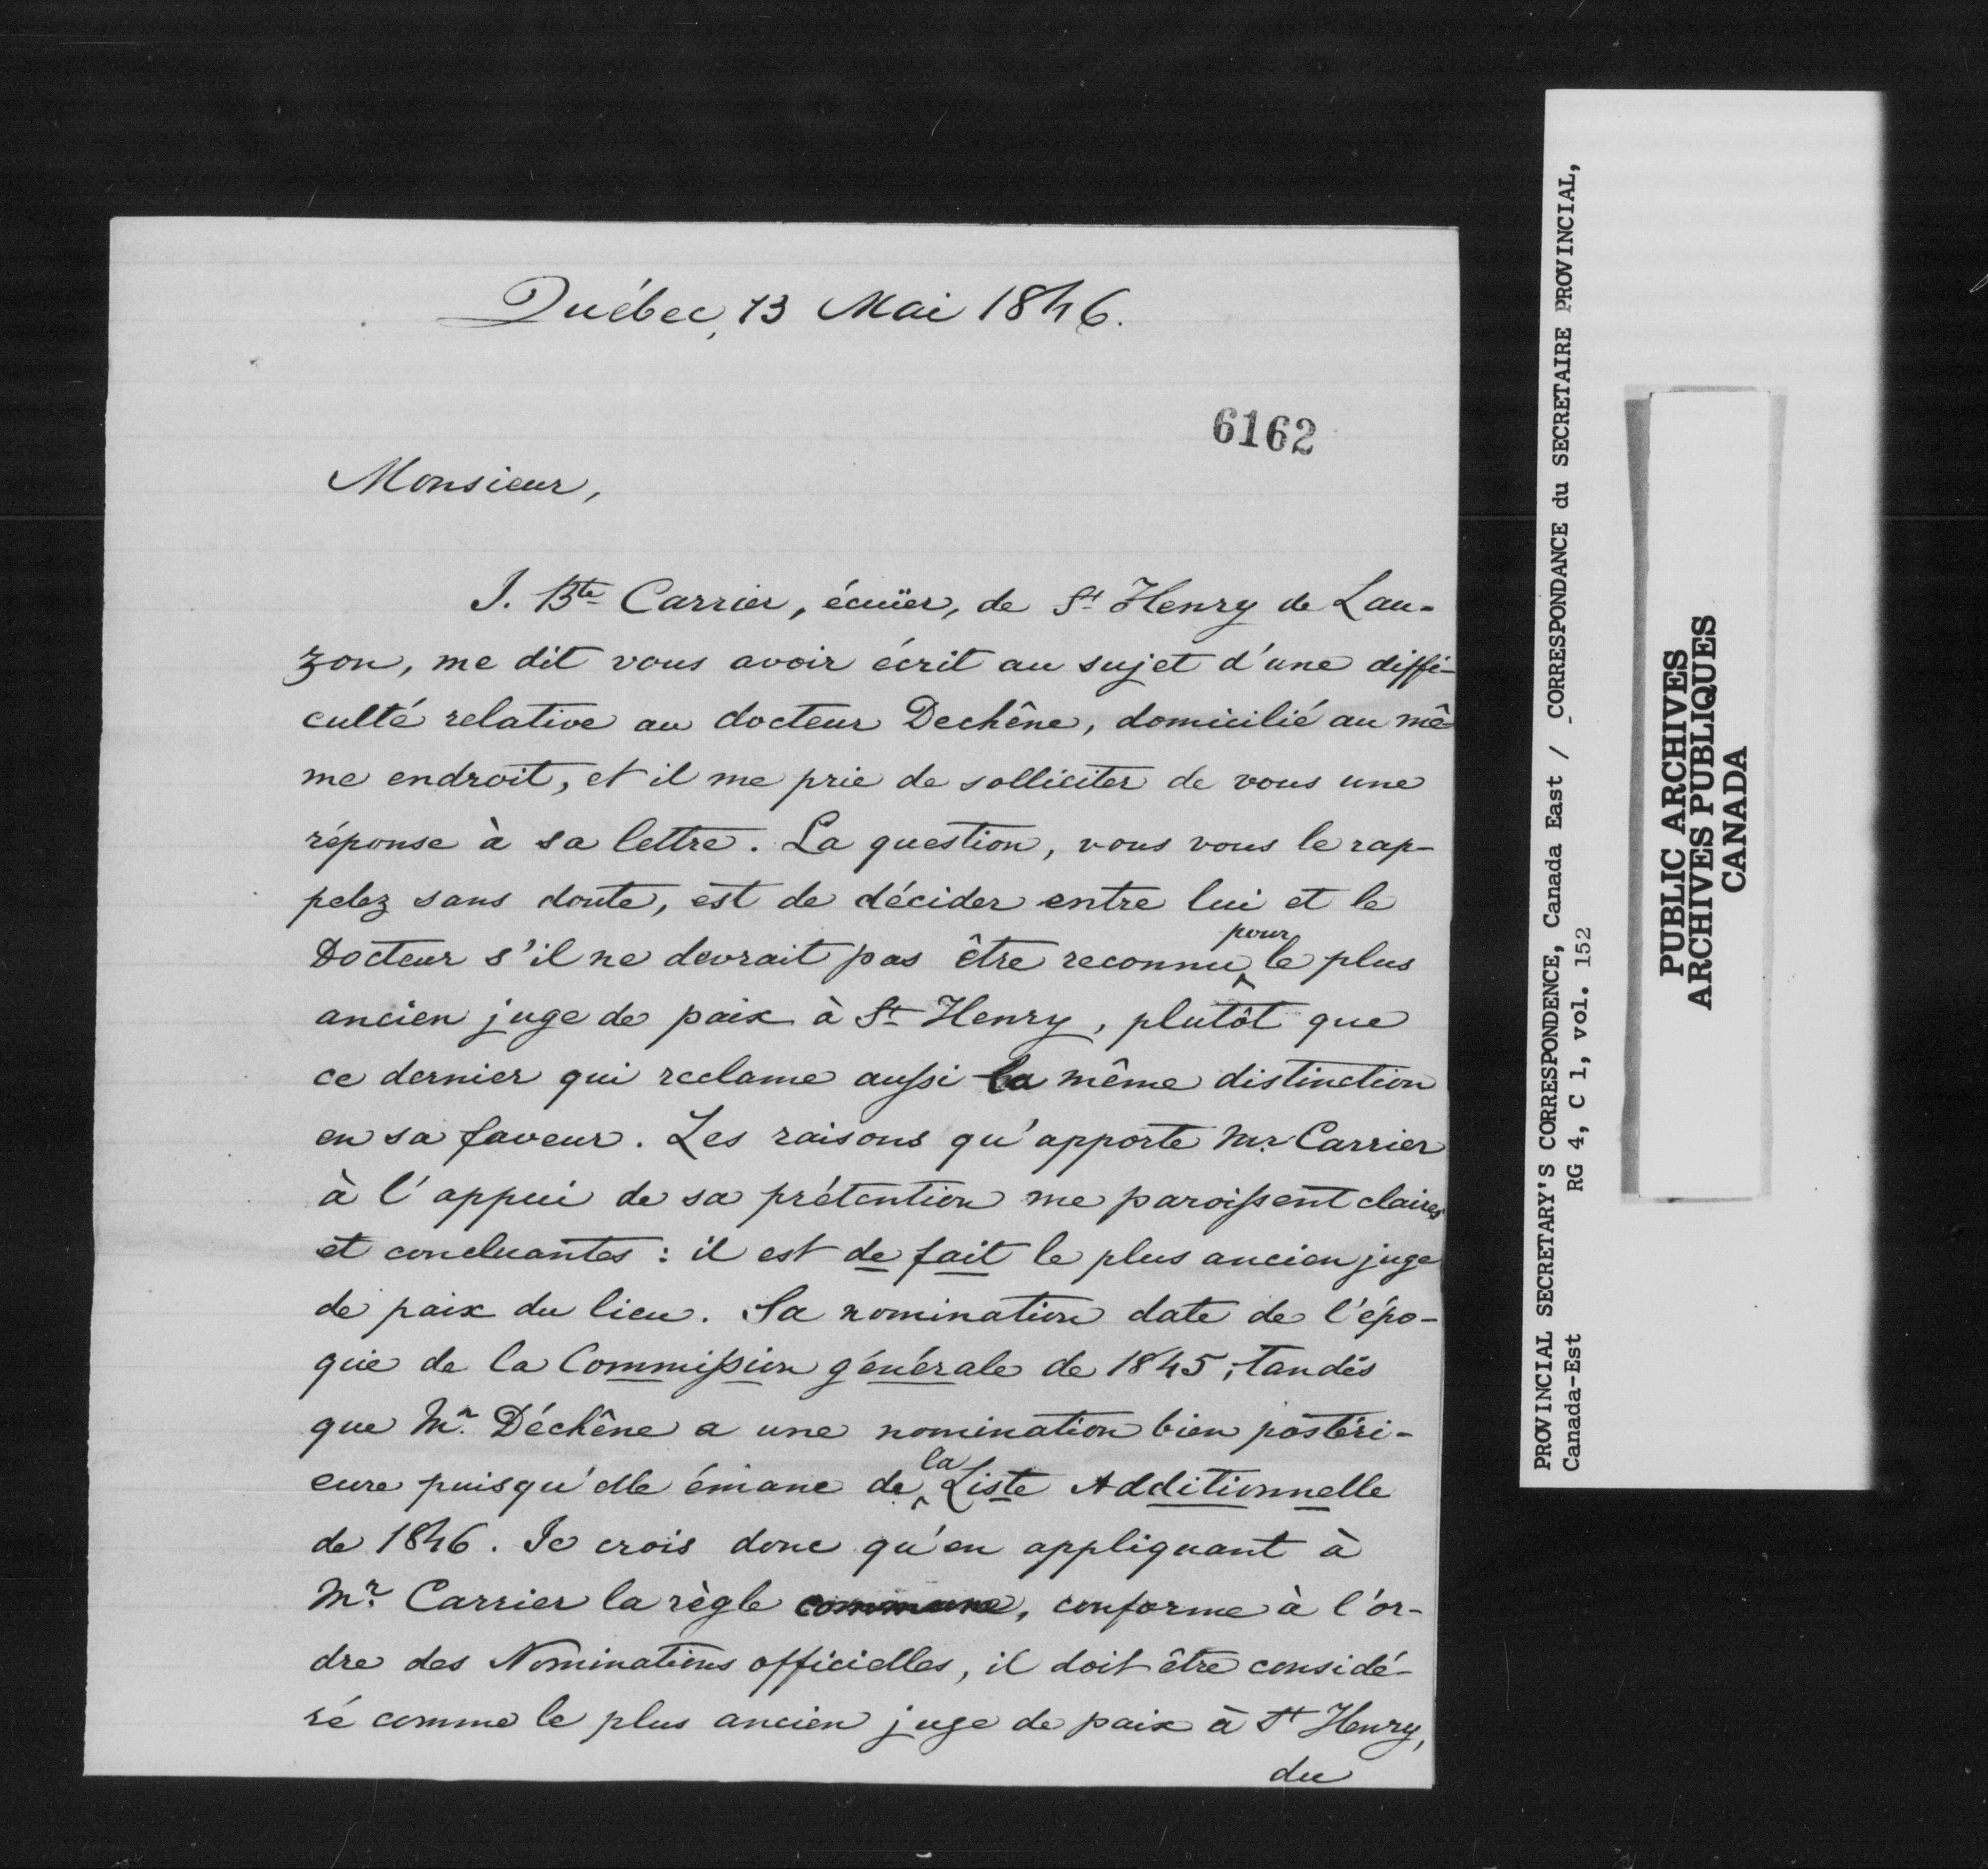 Québec, 13 Mai 1846.
6162
Monsieur,
J. Bte Carrier, écuïer, de St Henry de Lau-
zon, me dit vous avoir écrit au sujet d'une diffi-
culté relative au docteur Dechêne, domicilié au mê-
me endroit, et il me prie de solliciter de vous une
réponse à sa lettre. La question, vous vous le rap-
pelez sans doute, est de décider entre lui et le
Docteur s'il ne devrait pas être reconnu pour le plus
ancien juge de paix à St Henry, plutôt que
ce dernier qui reclame aussi la même distinction
en sa faveur. Les raisons qu'apporte Mr. Carrier
à l'appui de sa prétention me paroissent claires
et concluantes : il est de fait le plus ancien juge
de paix du lieu. Sa nomination date de l'épo-
que de la Commission générale de 1845 ; tandis
que Mr. Déchêne a une nomination bien postéri-
eure puisqu'elle émane de la Liste Additionnelle
de 1846. Je crois donc qu'en appliquant à
Mr. Carrier la règle commune, conforme à l'or-
dre des Nominations officielles, il doit être considé-
ré comme le plus ancien juge de paix à St Henry,
du
PROVINCIAL SECRETARY'S CORRESPONDENCE, Canada East / CORRESPONDANCE du SECRETAIRE PROVINCIAL,
Canada-Est RG 4, C 1, vol. 152
PUBLIC ARCHIVES
ARCHIVES PUBLIQUES
CANADA